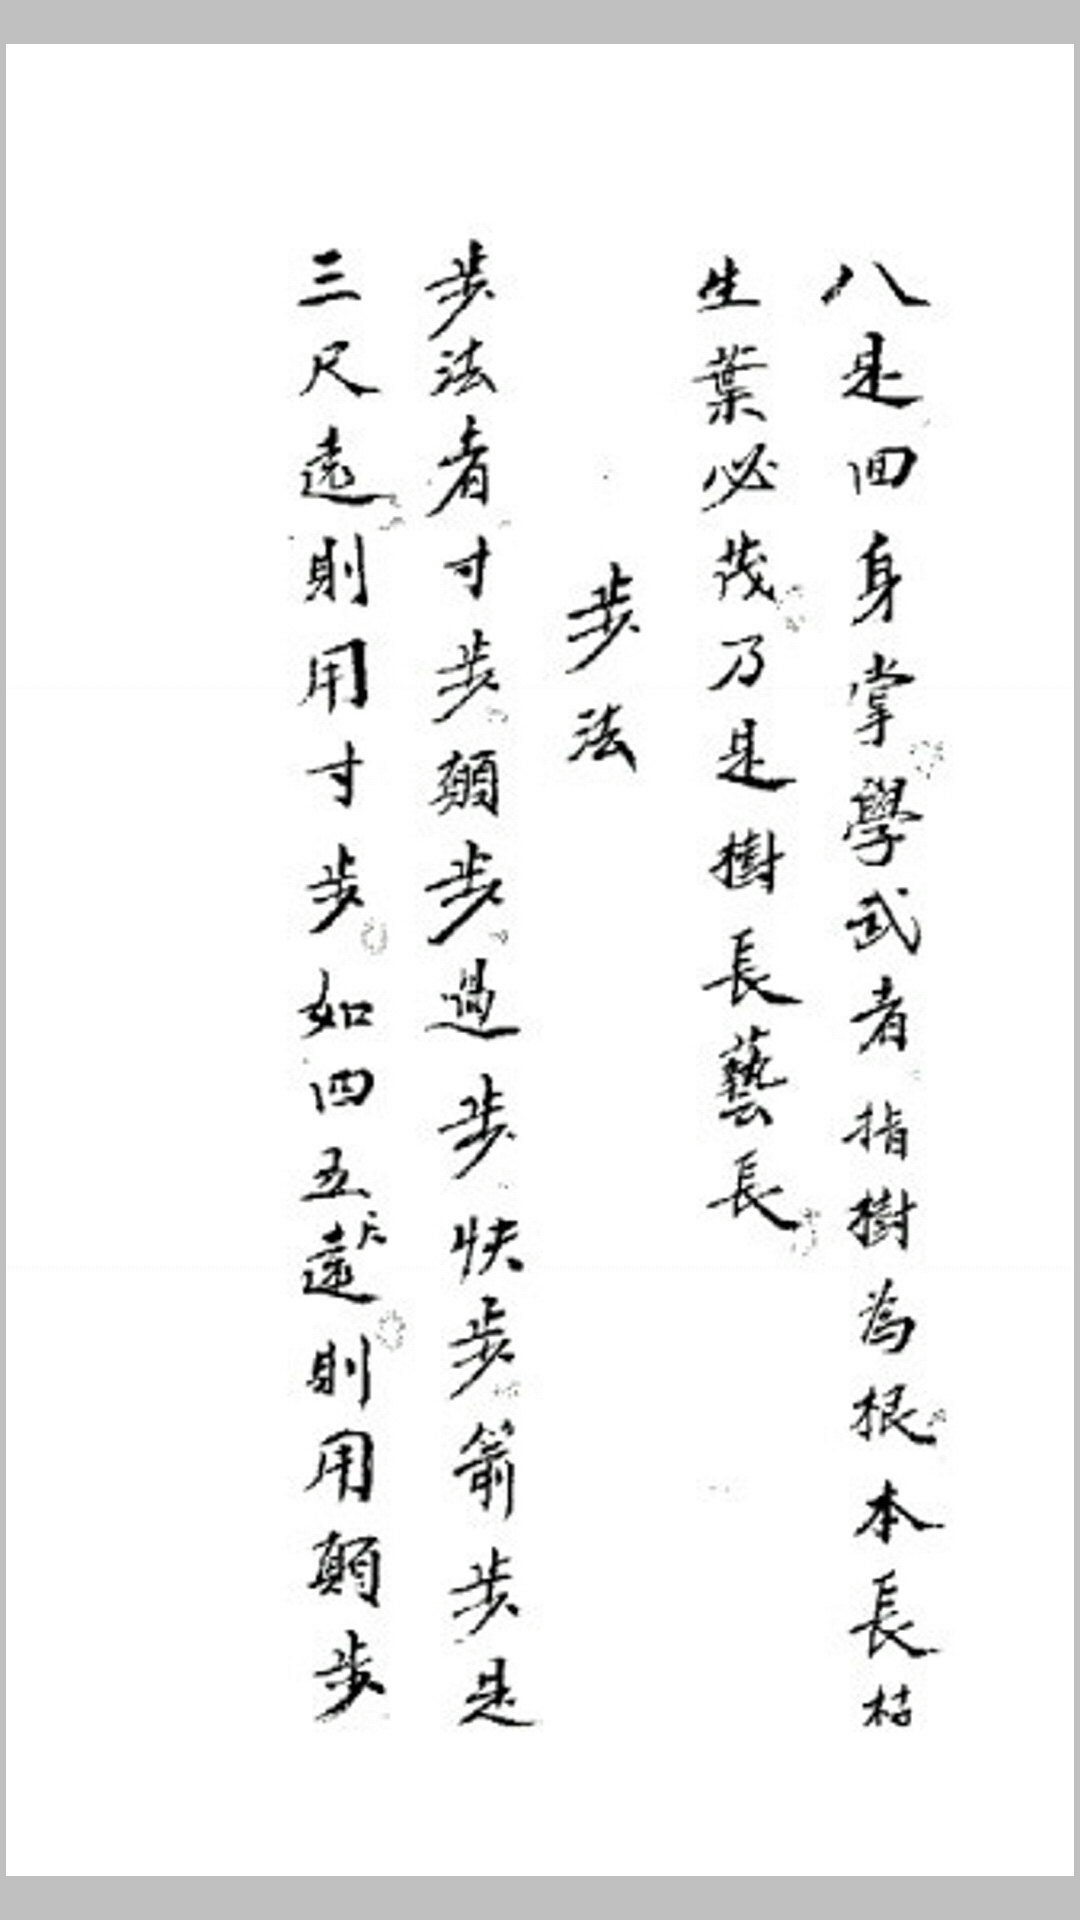 八是回身掌學武者指樹為根本長枯
生葉必茂乃是樹長藝長
步法
步法者寸步顛步過步快步箭步是
三尺遠則用寸步如四五尺遠則用顛步